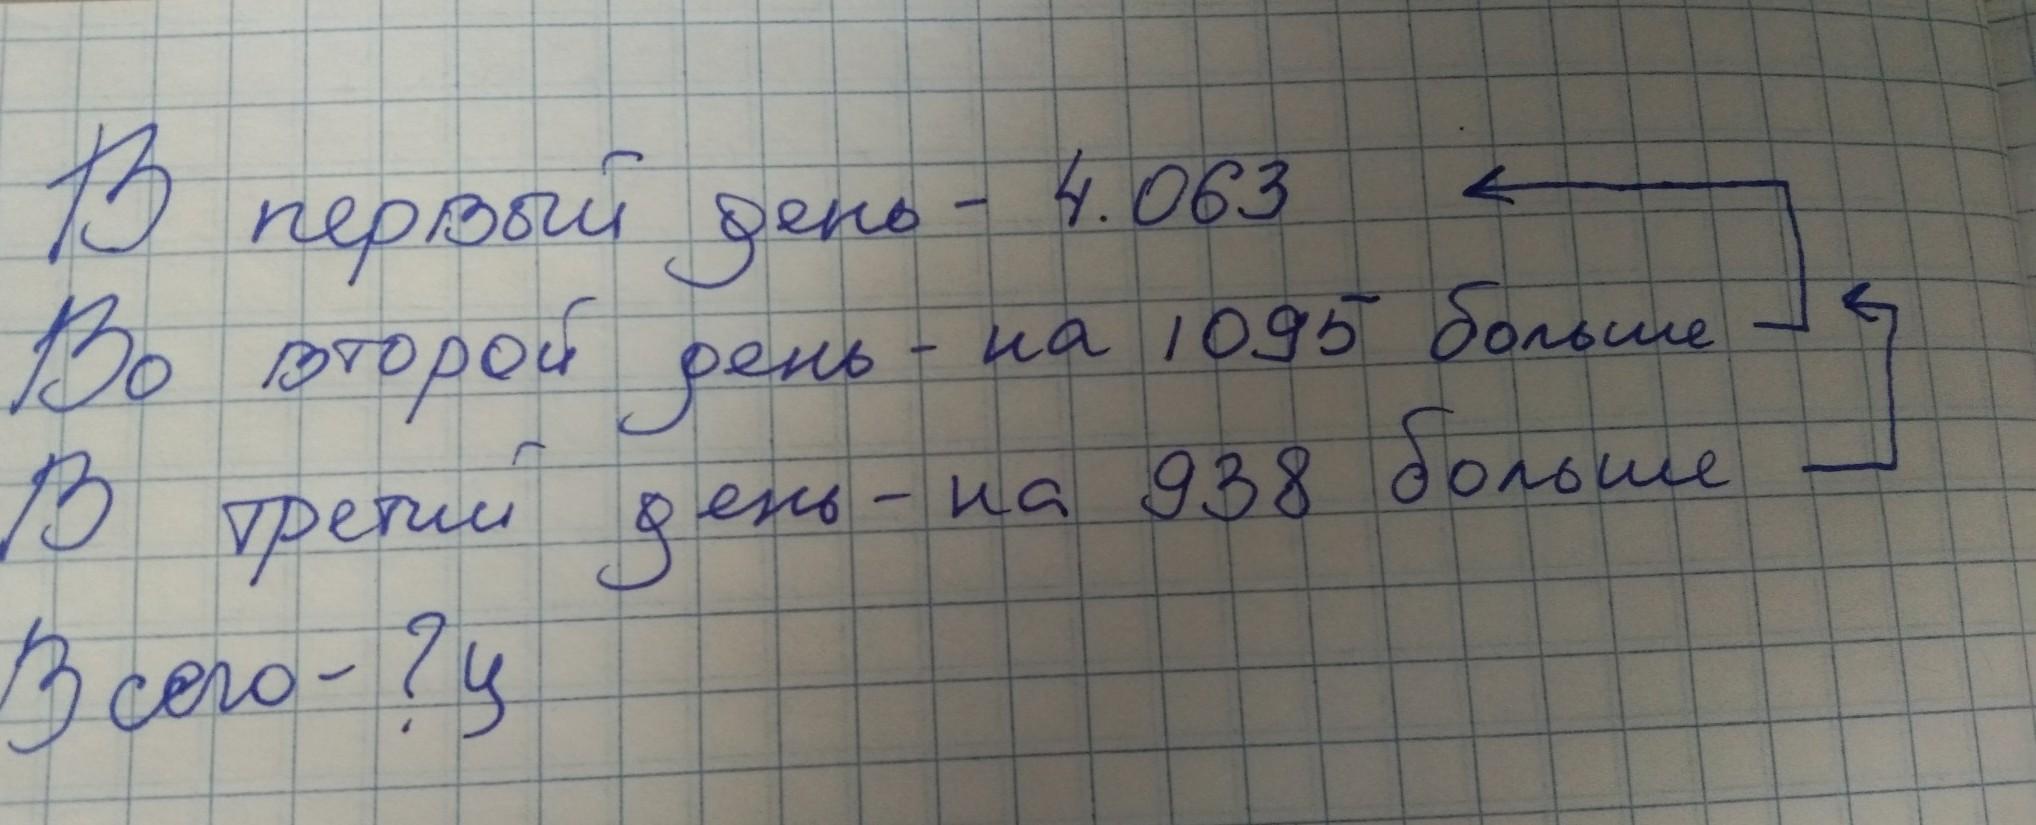 В первый день - 4.063
Во второй день - на 1095 больше
В третий день - на 938 больше
Всего - ? ц